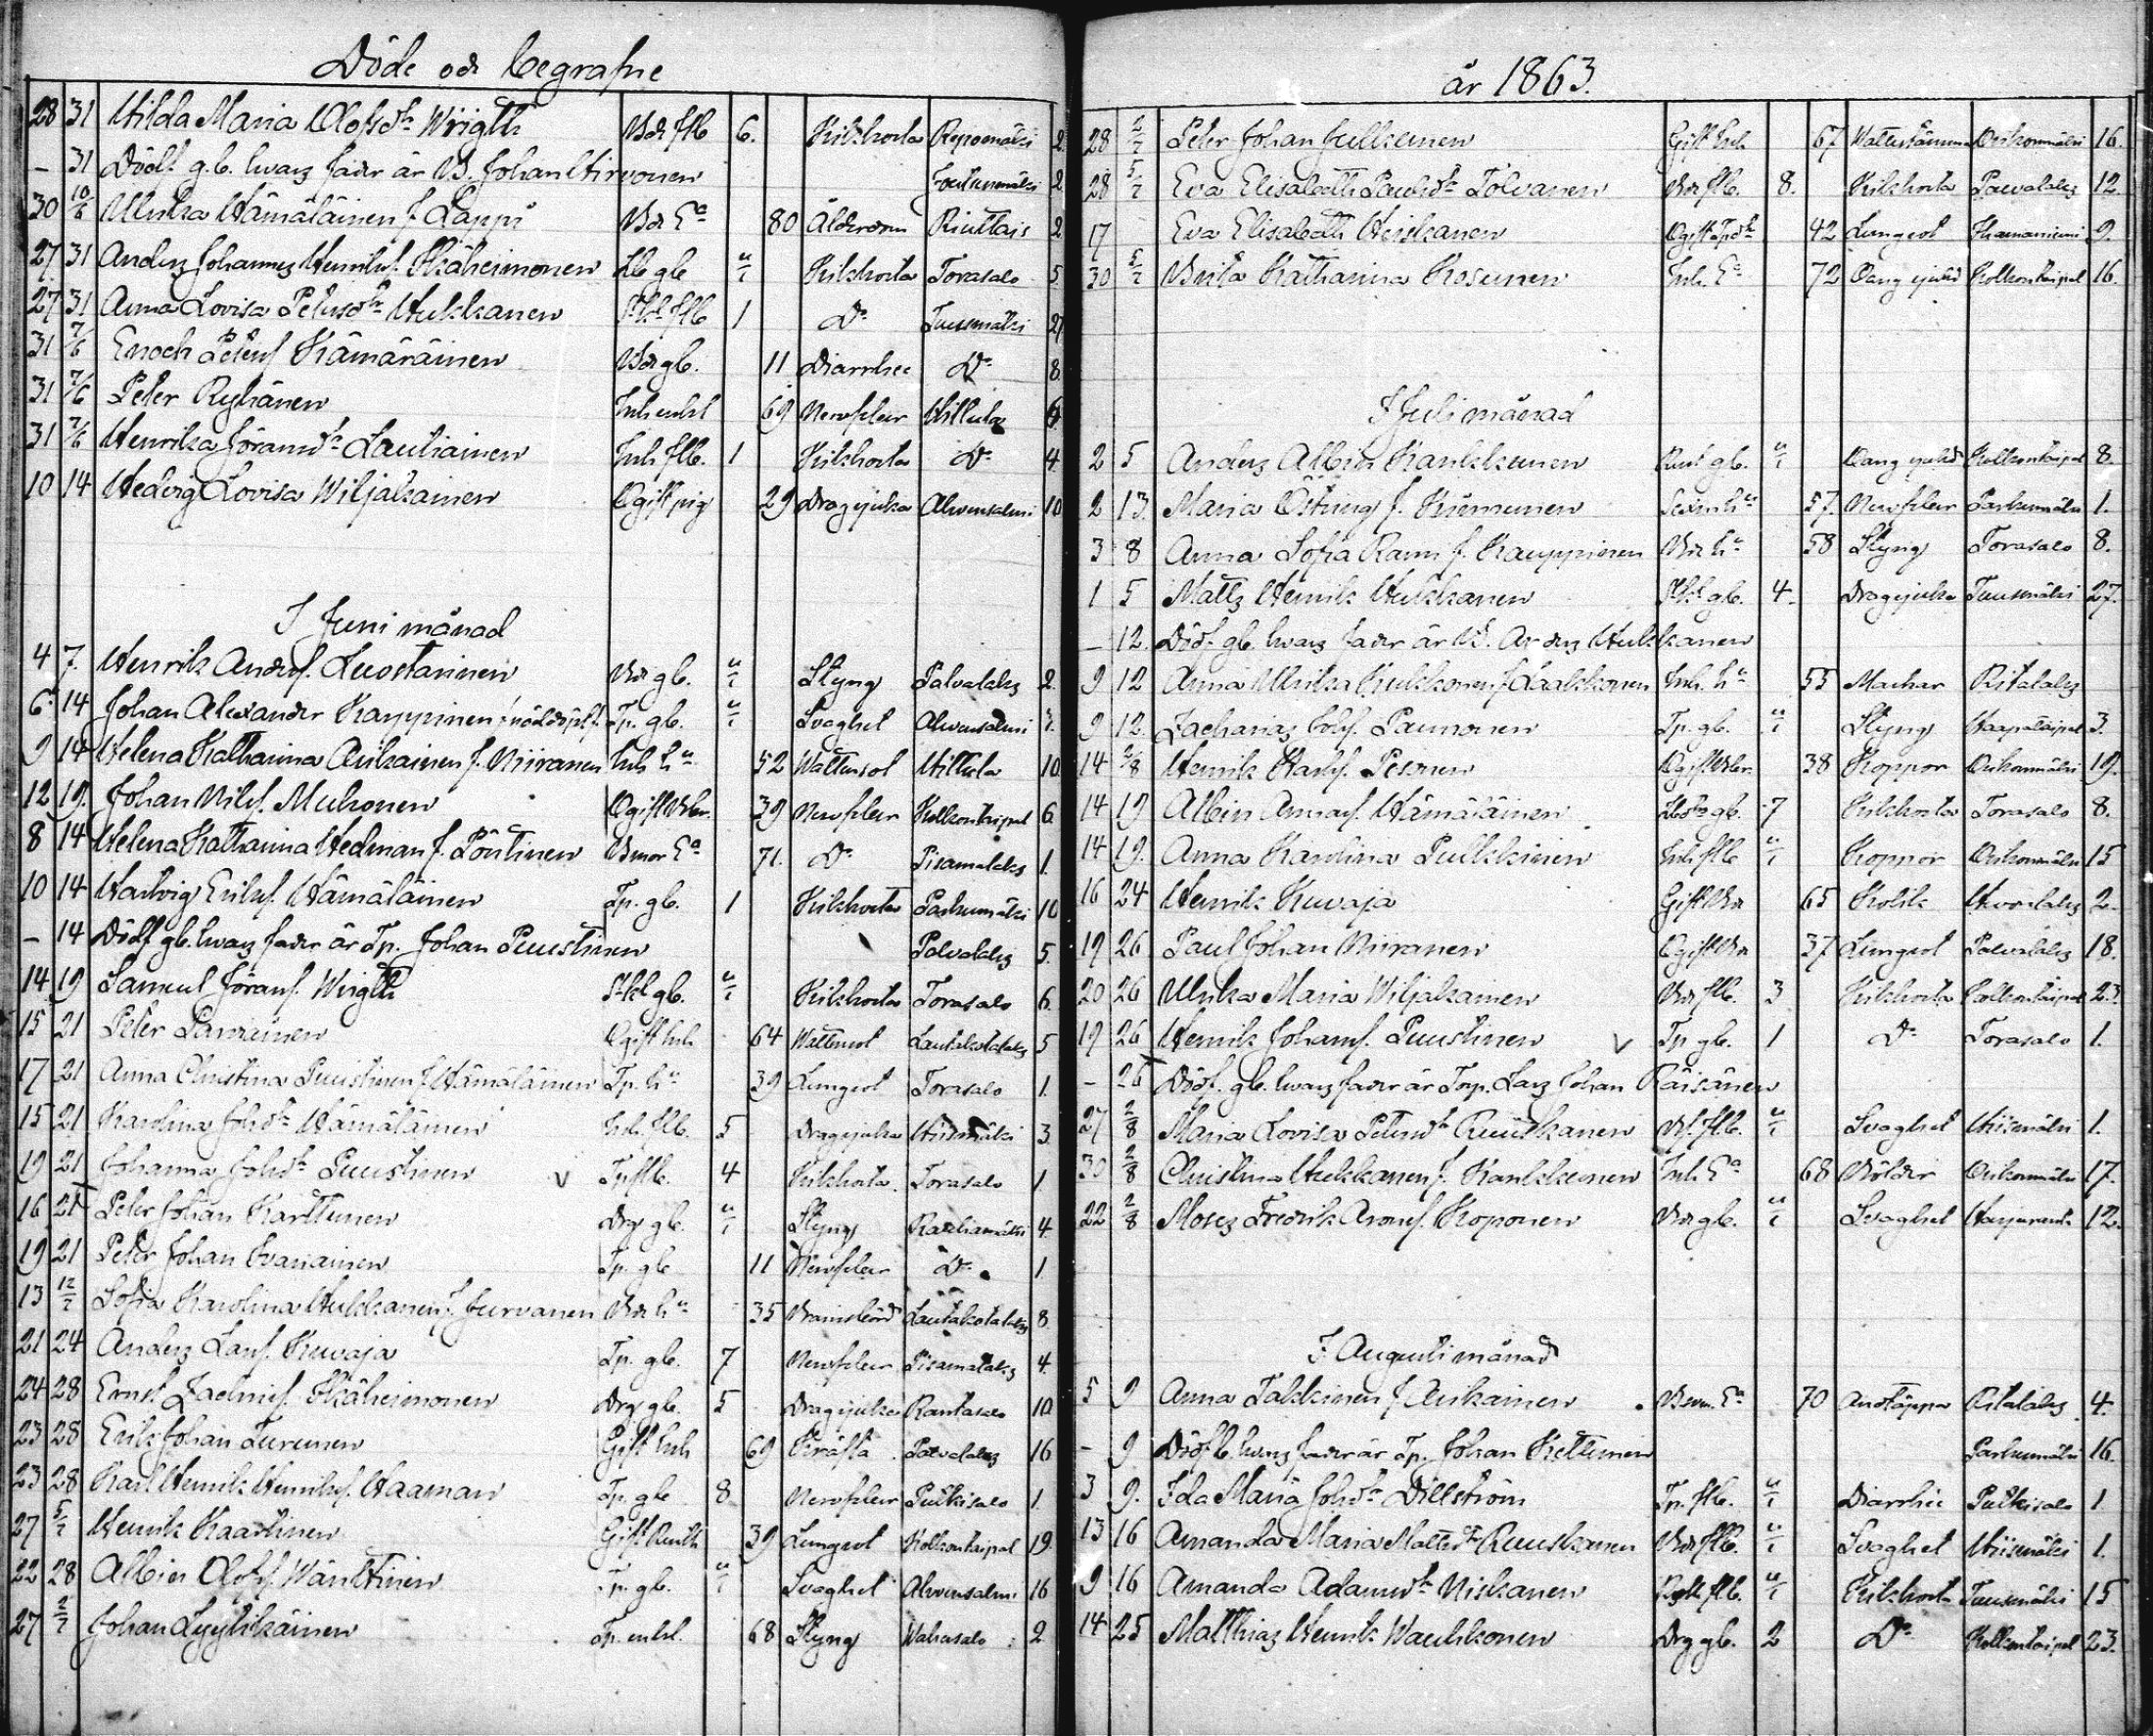 Döde och begrafne
28 31 Hilda Maria Olofsdr Wrigth Bd flb 6. Kikhosta Repomäki 2
– 31 Dödf. g.b. hvars fader är B. Johan Hirvonen Joutenmäki 2
30 10/6 Ulrika Hämäläinen f. Lappi Bd Ea 80 Ålderdom Riuttais 2
27 31 Anders Johannes Henriks. Ikäheimonen Lb gb u/1 Kikhosta Torasalo 5
27 31 Anna Lovisa Petersdr Hukkanen flb 1 Do Tuusmäki 27
31 7/6 Enoch Peters. Kämäräinen Bd gb. 11 Diarrhee Do 8
31 7/6 Peter Ryhänen Inh enkl 69 Nervfeber Hiltula
31 7/6 Henrika Göransdr Lautiainen Inh flb. 1 Kikhosta Do 4
10 14 Hedvig Lovisa Wiljakainen Ogift pig 29 Dragsjuka Ahvensalmi 10
I Juni månad
4 7. Henrik Anders. Luostarinen Bd gb. u/1 Styng Palvalaks 2
6 14 Johan Alexander Kauppinen Tp. gb. u/1 Svaghet Ahvensalmi
9 14 Helena Katharina Auikainen f. Niiranen Inh hu 52 Wattusot Hiltula 10
12 19. Johan Nils. Muhonen Ogift 39 Nervfeber Kolkontaipal 6
8 14 Helena Katharina Hedman f. Pöntinen Ea 71. Do Pisamalaks 1.
10 14 Hartvig Eriks. Hämäläinen Tp. gb. 1 Kikhosta Parkumäki 10
– 14 Dödf gb. hvars fader är Tp. Johan Puustinen Palvalaks 5.
14 19 Samuel Görans. Wrigth gb. u/1 Kikhosta Torasalo 6
15 21 Peter Ogift Inh 64 Wattusot Lautakotalaks 5
17 21 Anna Christina Puustinen f. Hämäläinen Tp. hu 39 Lungsot Torasalo 1.
15 21 Karolina Johdr Hämäläinen Inh. flb. 5 Dragsjuka Hiismäki 3.
19 21 Johanna Johdr Puustinen v Tp flb. 4 Kikhosta. Torasalo 1
16 21 Peter Johan Karttunen Drg gb. u/1 Styng 4
19 21 Peter Johan Ivanainen Tp. gb 11 Nervfeber Do 1
13 12/7 Sofia Karolina Hukkanen f. Jurvanen Bd hu 35 Barnsbörd Lautakotalaks 8
21 24 Anders Lars. Kuvaja Tp. gb. 7 Nervfeber Pisamalaks 4
24 28 Ernst Zachris. Ikäheimonen Drg gb. 5 Dragsjuka Rantasalo 10
23 28 Erik Johan Turunen Gift Inh 69 Kräfta Palvalaks 16
23 28 Karl Henrik Henriks. Haaman Tp. gb 8 Nervfeber Putkisalo 1
27 5/7 Henrik Kaartinen Gift 39 Lungsot Kolkontaipal 19
22 28 Albin Olofs. Wänttinen Tp. gb. u/1 Svaghet Ahvensalmi 16
27 2/7 Johan Lyytikäinen Tp. enkl. 68 Styng Wahasalo 2
år 1863.
28 2/7 Peter Johan Julkunen Gift Inh 67 Oirkonmäki 16.
28 5/7 Eva Elisabeth Paulsdr Tolvanen Bd flb. 8. Kikhosta Palvalaks 12.
17 Eva Elisabeth Heiskanen Ogift 42 Lungsot 9.
30 5/7 Brita Katharina Kosunen Inh. Ea 72 Oang sjukd Kolkontaipal 16.
I Juli månad
2 5 Anders Albin Kankkunen gb. u/1 Oang sjukd Kolkontaipal 8.
2 13. Maria Östring f. Kiimunen hu 57. Nervfeber Parkumäki 1.
3 8 Anna Sofia Rami f. Kauppinen Bd hu 58 Styng Torasalo 8.
1 5 Matts Henrik Hukkanen gb. 4. Dragsjuka Tuusmäki 27.
– 12. Dödf. gb. hvars fader är B. Anders Hukkanen
9 12 Anna Ulrika Kukkonen f. Laakkonen Inh. hu 55 Maskar Ritalaks
9 12. Zacharias Paunonen Tp. gb. u/1 Styng Haapataipal 3.
14 2/8 Henrik Pesonen Ogift 38 Koppor Oirkonmäki 19.
14 19 Albin Hämäläinen gb. 7 Kikhosta Torasalo 8.
14 19. Anna Karolina Pulkkinen Inh flb u/1 Koppor Oirkonmäki 15
16 24 Henrik Kuvaja Gift Bd 65 Kolik 2.
19 26 Paul Johan Niiranen Ogift Bd 37 Lungsot Palvalaks 18.
20 26 Ulrika Maria Wiljakainen Bd flb. 3 Kikhosta Kolkontaipal 23.
19 26 Henrik Johans. Puustinen v Tp gb. 1 Do Torasalo 1.
– 26 Dödf. gb. hvars fader är Torp. Lars Johan Räisänen
27 2/8 Maria Lovisa Petersdr Ruuskanen flb. u/1 Svaghet Hiismäki 1.
30 2/8 Christina Hukkanen f. Kankkunen Inh Ea 68 Bölder Oirkonmäki 17.
22 2/8 Moses Fredrik Arons. Koponen Bd gb. u/1 Svaghet Harjuranta 12.
I Augusti månad
5 9 Anna Takkinen f. Auikainen Ea 70 Andtäppa Ritalaks 4.
– 9 Dödf b. hvars fader är Tp. Johan Kettunen Parkumäki 16.
3 9. Ida Maria Johdr Dillström Tp. flb. u/1 Diarrhee Putkisalo 1
13 16 Amanda Maria Mattsdr Ruuskanen Bd flb. u/1 Svaghet Hiismäki 1.
9 16 Amanda Adamsdr Niskanen flb. u/1 Kikhosta Tuusmäki 15
14 25 Matthias Henrik Wauhkonen Drg gb. 2 Do Kolkontaipal 23.